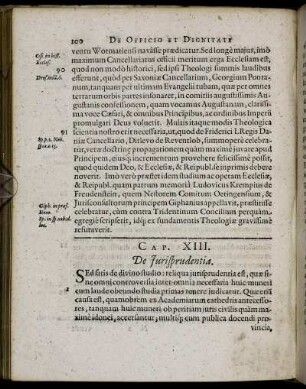 100 DE OFFICIO ET DIGNITATE
ventu Wormatiensi navâsse prædicatur. Sed longè major, imò
maximum Cancellariatus officii meritum erga Ecclesiam est,
90
quod non modò historici, sed ipsi Theologi summis laudibus
efferunt, quòd per Saxoniæ Cancellarium, Georgium Pontanum,
tanquam per ultimum Evangelii rabum, quæ per omnes
terrarum orbis partes insonaret, in comitiis augustissimis Augustanis
confessionem, quam vocamus Augustanam, clarissima
voce Cæsari, & omnibus Principibus, ac ordinibus Imperii
promulgari Deus voluerit. Multis itaque modis Theologica
91
scientia nostro erit necessaria, ut, quod de Friderici I. Regis Daniæ
Cancellario, Ditlevo de Reventlob, summopere celebratur,
veræ doctrinæ propagationem quàm maximè juvare apud
Principem, ejusq; incrementum provehere felicissimè possit,
quod quidem Deo, & Ecclesiæ, & Reipublicæ impendi debere
noverit. Imò verò præter idem studium ac operam Ecclesiæ,
& Reipubl. quàm parum memoriâ Ludovicus Krempius de
Freudenstein, quem Nestorem Comitum Oetingensium, &
Jurisconsultorum principem Giphanius appellavit, præstitisse
celebratur, dum contra Tridentinum Concilium perquàm
egregiè scripserit, idq; ex fundamentis Theologiæ gravissimè
refutaverit.
CAP. XIII.
De Jurisprudentia.
SEd satis de divino studio: reliqua jurisprudentia est, quæ sine
omni controversia inter omnia necessaria huic muneri
cum laude obeundo studia primas tenere indicatur. Quæ etiam
causa est, quamobrem ex Academiarum cathedris antecessores,
tanquam huic muneri ob peritiam juris civilis quàm maximè
idonei, accersantur, multisq; cum publica docendi provincia,